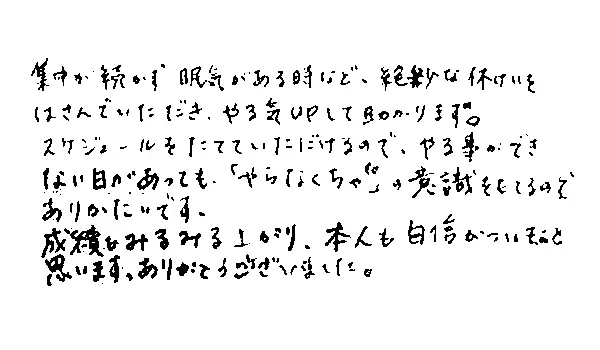 集中が続かず眠気がある時など、絶妙な休けいを
はさんでいただき、やる気UPして助かります。
スケジュールをたてていただけるので、やる事ができ
ない日があっても、「やらなくちゃ」の意識をもてるので
ありがたいです。
成績もみるみる上がり、本人も自信がついたと
思います。ありがとうございました。